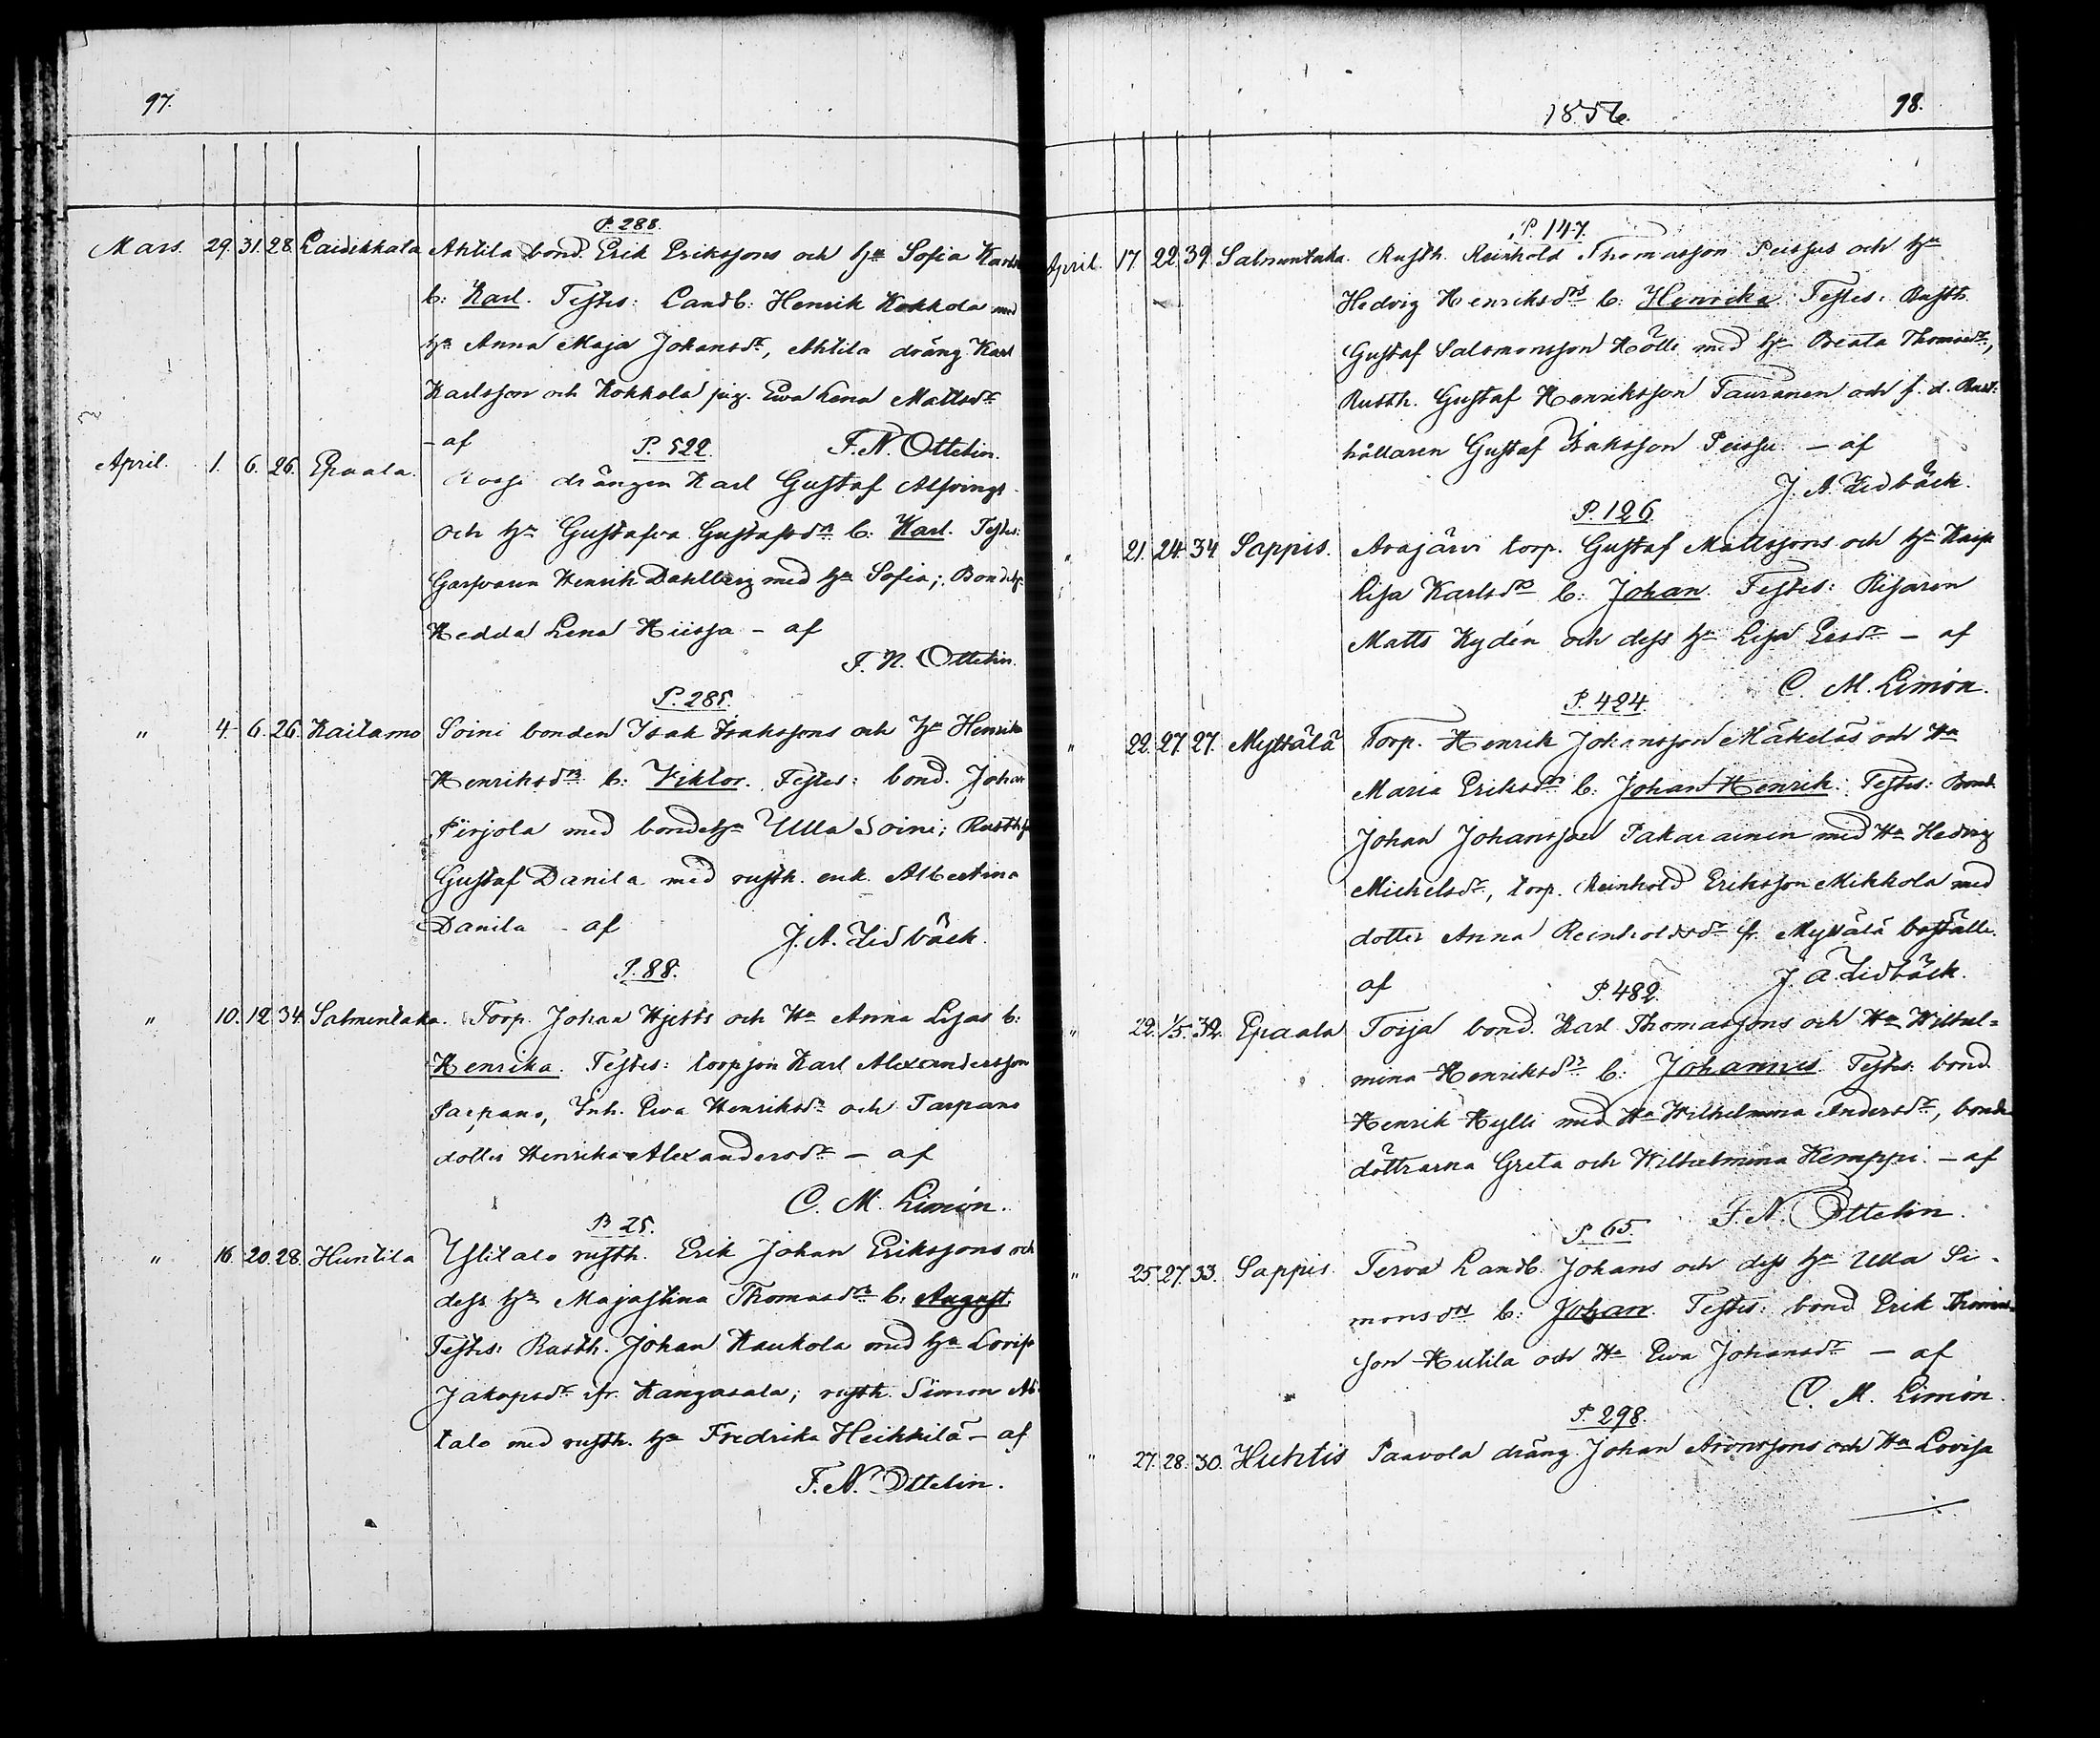 97.
P. 288.
Mars. 29. 31. 28. Laidikkala Ahtila bond. Erik Erikssons och hu Sofia Karlsdr
b: Karl. Testes: Landb: Henrik Kokkola med
hu Anna Maja Johansdr, Ahtila dräng Karl
Karlsson och Kokkola pig. Ewa Lena Mattsdr
– af F. N. Ottelin.
P. 522.
April. 1. 6. 26. Epaala. drängen Karl Gustaf Alfvings
och hu Gustafva Gustafsdrs b: Karl. Testes:
Garfvaren Henrik Dahlberg med hu Sofia; Bondehu
Hedda Lena Hiissa – af
F. N. Ottelin.
P. 285.
" 4. 6. 26. Kailamo Soini bonden Isak Isakssons och hu Henrika
Henriksdrs b: Viktor. Testes: bond. Johan
Pirjola med bondehu Ulla Soini; Rusth.
Gustaf Danila med rusth. enk. Albertina
Danila – af J. A. Lidbäck.
P. 88.
" 10. 12. 34. Salmentaka. Torp. Johan Hjetts och Hu Anna Lisas b:
Henrika. Testes: torpson Karl Alexandersson
Parpans, Inh. Ewa Henriksdr och Tarpans
dotter Henrika Alexandersdr – af
C. M. Limón.
P 25.
" 16. 20. 28. Huntila Ylitalo rusth. Erik Johan Erikssons och
dess hu Majastina Thomasdrs b: August.
Testes: Rusth. Johan Kaukola med hu Lovisa
Jakopsdr fr. Kangasala; rusth. Simon Ali-
talo med rusth. hu Fredrika Heikkilä – af
F. N. Ottelin.
1856. 98.
P. 147.
April. 17. 22. 39. Salmentaka. Rusth. Reinhold Thomasson Peissus och hu
Hedvig Henriksdrs b: Henrika. Testes: Rusth.
Gustaf Salomonsson Kölli med hu Beata Thomasdr,
Rusth. Gustaf Henriksson Tauranen och f. d. Rust-
hållaren Gustaf Isaksson Peissu. – af
J. A. Lidbäck.
P. 126.
" 21. 24. 34. Sappis. Arajärvi torp. Gustaf Mattssons och hu Kaisa
Lisa Karlsdrs b: Johan. Testes: Risaren
Matts Rydén och dess hu Lisa Ersdr – af
C. M. Limón.
P. 424.
" 22. 27. 27. Myttälä Torp. Henrik Johansson Mäkeläs och Hu
Maria Eriksdrs b: Johan Henrik. Testes: Bond.
Johan Johansson Pakarainen med Hu Hedvig
Michelsdr, torp. Reinhold Eriksson Mikkola med
dotter Anna Reinholdsdr fr. Myttälä boställe.
af J. A. Lidbäck.
P. 482.
" 29. 1/5. 32. Epaala Toija bond. Karl Thomassons och Hu Wilhel=
mina Henriksdrs b: Johannes. Testes: bond
Henrik Hylli med Hu Wilhelmina Andersdr, bonde
döttrarna Greta och Wilhelmina Kemppi. – af
F. N. Ottelin.
P 65.
" 25. 27. 33. Sappis. Terva Landb. Johans och dess hu Ulla Si-
monsdrs b: Johan. Testes: bond Erik Thomas-
son Hutila och Hu Ewa Johansdr – af
C. M. Limón.
P. 298.
" 27. 28. 30. Huhtis Paavola dräng Johan Aronssons och Hu Lovisa